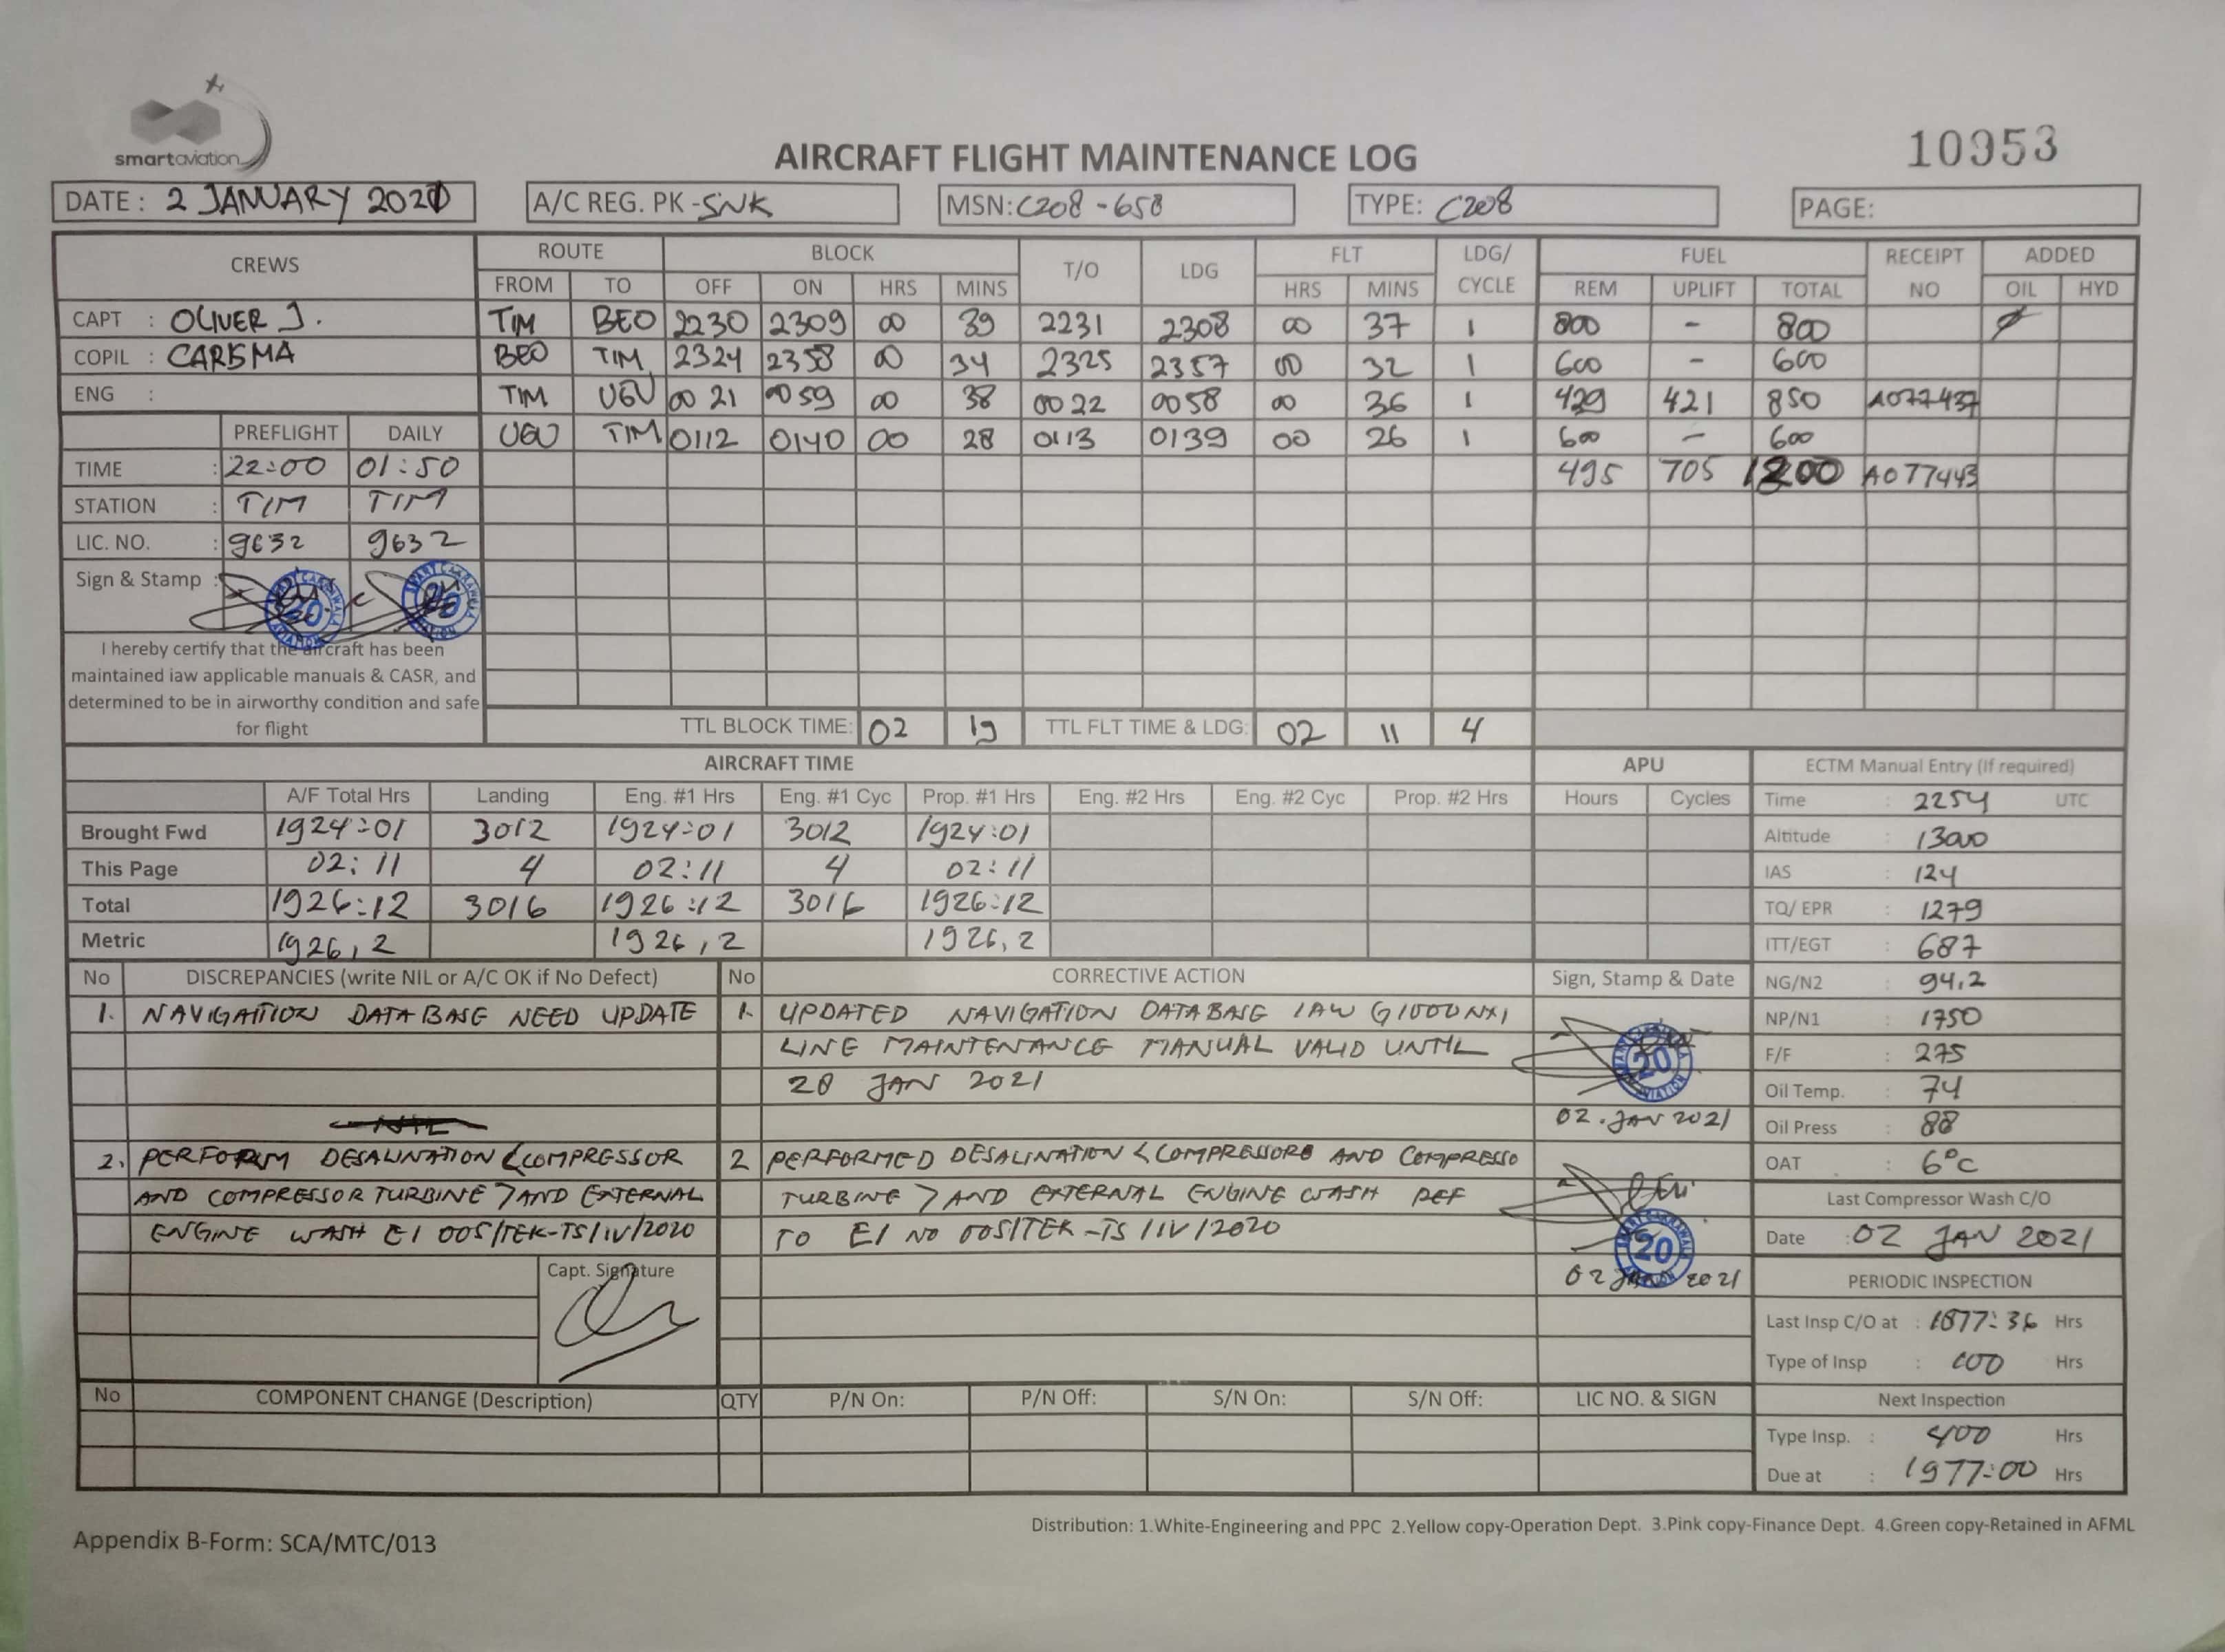 smartaviation
AIRCRAFT FLIGHT MAINTENANCE LOG
10953
DATE: 2 JANUARY 2021
A/C REG. PK-SNK
MSN: C208-658
TYPE: C208
PAGE:
CREWS ROUTE BLOCK T/O LDG FLT LDG/CYCLE FUEL RECEIPT NO ADDED
FROM TO OFF ON HRS MINS HRS MINS REM UPLIFT TOTAL OIL HYD
CAPT : OLIVER J. TIM BEO 2230 2309 00 39 2231 2308 00 37 1 800 - 800
COPIL : CARISMA BEO TIM 2324 2358 00 34 2325 2357 00 32 1 600 - 600
ENG : TIM UGU 0021 0059 00 38 0022 0058 00 36 1 429 421 850 A077437
PREFLIGHT DAILY UGU TIM 0112 0140 00 28 0113 0139 00 26 1 600 - 600
TIME : 22:00 01:50 495 705 1200 A077443
STATION : TIM TIM
LIC. NO. : 9632 9632
Sign & Stamp :
I hereby certify that the aircraft has been
maintained iaw applicable manuals & CASR, and
determined to be in airworthy condition and safe
for flight
TTL BLOCK TIME: 02 19 TTL FLT TIME & LDG: 02 11 4
AIRCRAFT TIME APU
A/F Total Hrs Landing Eng. #1 Hrs Eng. #1 Cyc Prop. #1 Hrs Eng. #2 Hrs Eng. #2 Cyc Prop. #2 Hrs Hours Cycles
Brought Fwd 1924:01 3012 1924:01 3012 1924:01
This Page 02:11 4 02:11 4 02:11
Total 1926:12 3016 1926:12 3016 1926:12
Metric 1926,2 1926,2 1926,2
ECTM Manual Entry (If required)
Time : 2254 UTC
Altitude : 13000
IAS : 124
TQ/ EPR : 1279
ITT/EGT : 687
NG/N2 : 94.2
NP/N1 : 1750
F/F : 275
Oil Temp. : 74
Oil Press : 88
OAT : 6°C
Last Compressor Wash C/O
Date : 02 JAN 2021
PERIODIC INSPECTION
Last Insp C/O at : 1877:36 Hrs
Type of Insp : 100 Hrs
Next Inspection
Type Insp. : 400 Hrs
Due at : 1977:00 Hrs
No DISCREPANCIES (write NIL or A/C OK if No Defect)
1. NAVIGATION DATABASE NEED UPDATE
2. PERFORM DESALINATION <COMPRESSOR
AND COMPRESSOR TURBINE > AND EXTERNAL
ENGINE WASH EI 005/TEK-TS/IV/2020
Capt. Signature
No CORRECTIVE ACTION Sign, Stamp & Date
1. UPDATED NAVIGATION DATABASE IAW G1000NXI
LINE MAINTENANCE MANUAL VALID UNTIL
28 JAN 2021
02.JAN 2021
2 PERFORMED DESALINATION <COMPRESSORE AND COMPRESSO
TURBINE > AND EXTERNAL ENGINE WASH REF
TO EI NO 005/TEK-TS/IV/2020
20
02 JAN 2021
No COMPONENT CHANGE (Description) QTY P/N On: P/N Off: S/N On: S/N Off: LIC NO. & SIGN
Appendix B-Form: SCA/MTC/013
Distribution: 1.White-Engineering and PPC 2.Yellow copy-Operation Dept. 3.Pink copy-Finance Dept. 4.Green copy-Retained in AFML